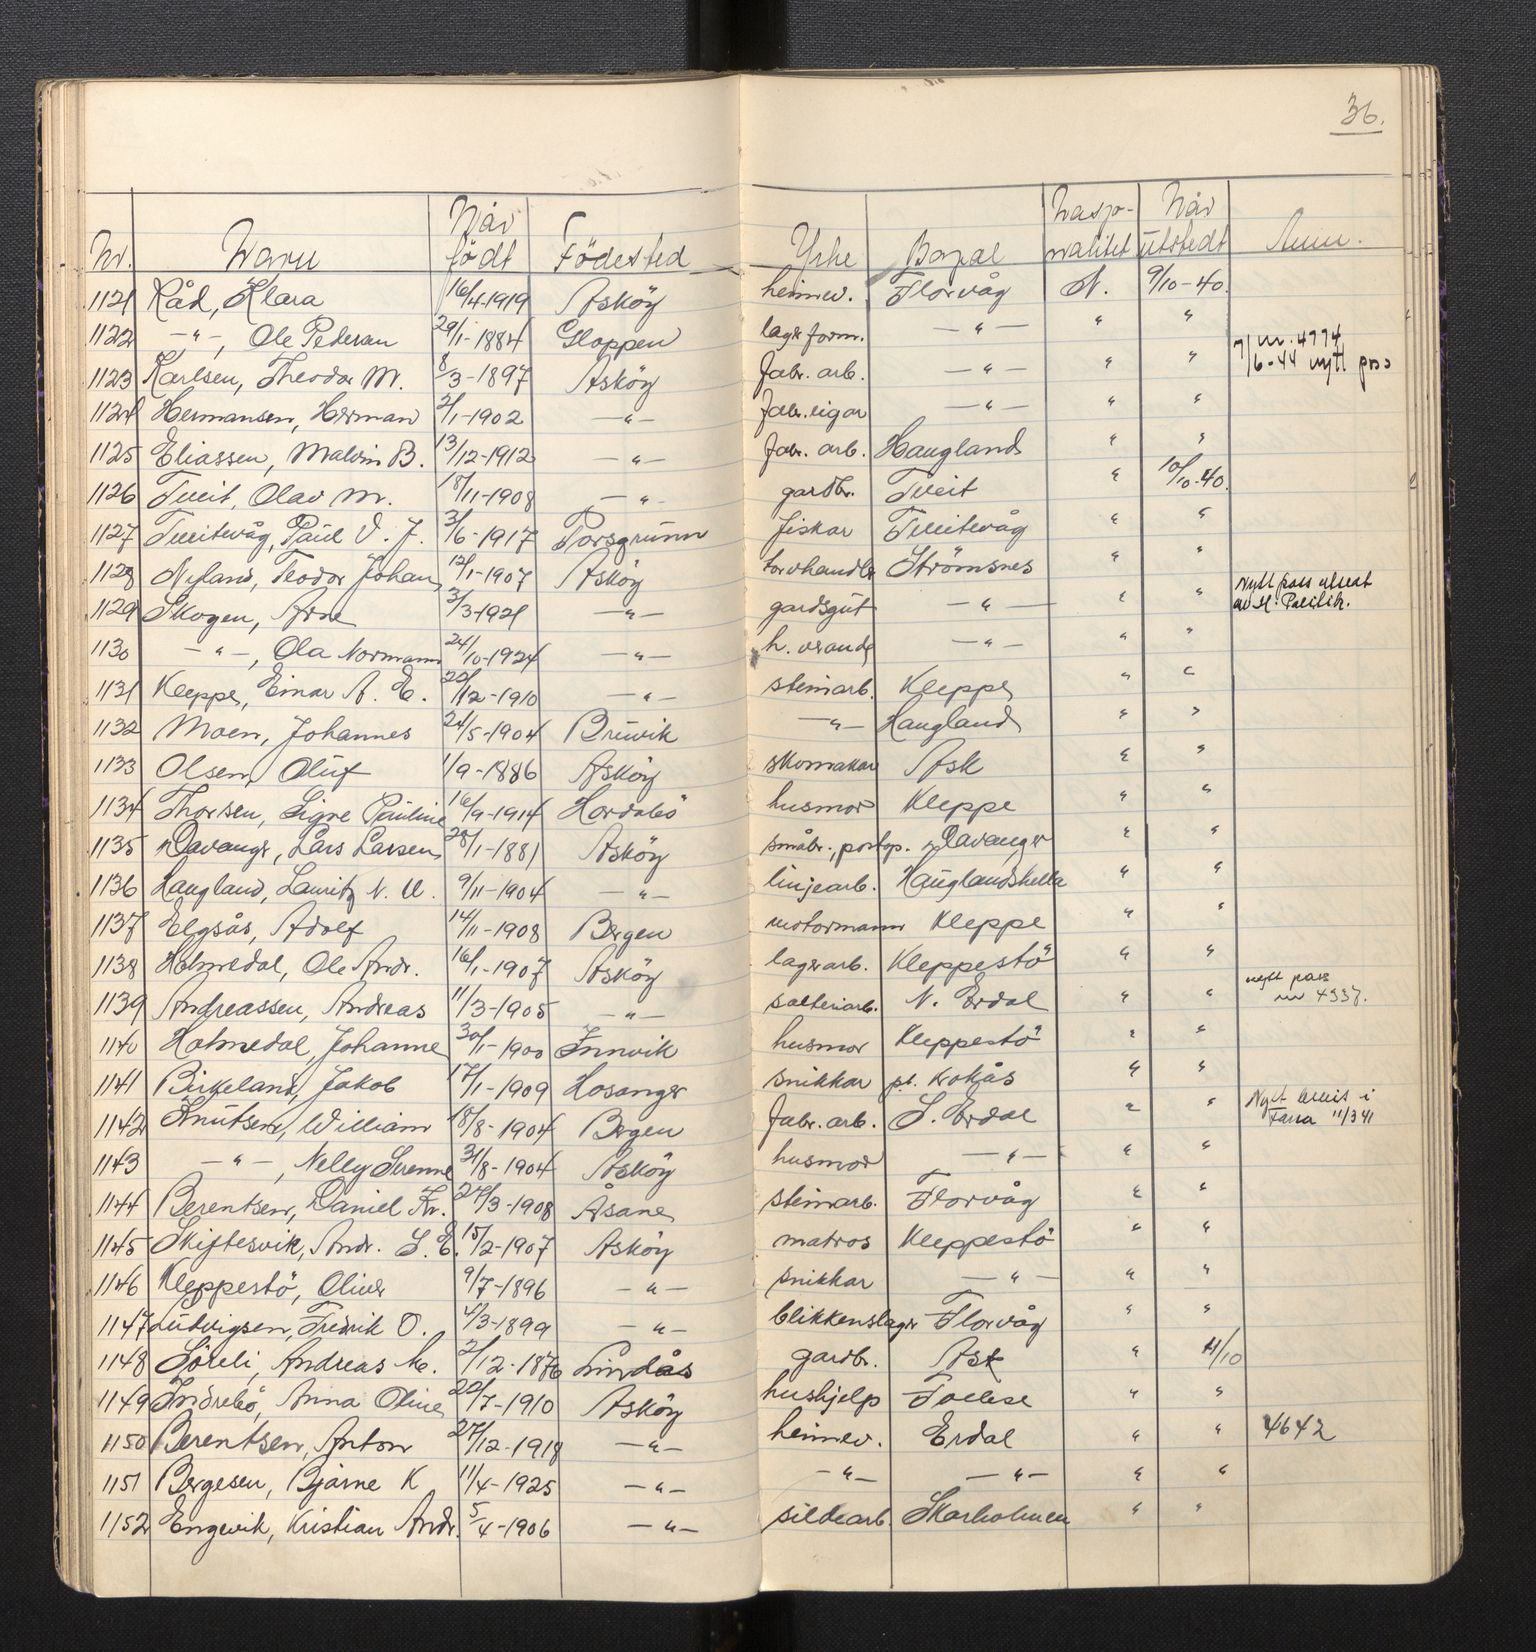 36.
Nr. Navn Når født Födested Yrke Bopæl Nasjonalitet Når utstedt Anm.
1121 Råd, Klara 16/4-1919 Asköy heimev. Florvåg N. 9/10-40.
1122 —"—, Ole Pedersen 29/1-1884 Gloppen lager form. —"— " "
1123 Karlsen, Theodor M. 8/3-1897 Asköy fabr. arb. —"— " " 7/6-44 nr. 4774 nytt pass
1124 Hermansen, Herman 2/1-1902 —"— fabr. eigar —"— " "
1125 Eliassen, Malvin B. 13/12-1912 —"— fabr. arb. Haugland " "
1126 Tveit, Olav M. 18/11-1908 —"— gardbr. Tveit " 10/10-40.
1127 Tveitevåg, Paul V. J. 3/6-1917 Porsgrunn fiskar Tveitevåg " "
1128 Nyland, Teodor Johan 12/1-1907 Asköy torvhandler Strömsnes " "
1129 Skogen, Arne 3/3-1921 —"— gardsgut —"— " " Nytt pass utstedt av St. Politik.
1130 —"—, Ola Normann 24/10-1924 —"— h. —"— " "
1131 Kleppe, Einar A. E. 22/12-1910 —"— steinarb. Kleppe " "
1132 Moen, Johannes 24/5-1904 Bruvik —"— Haugland " "
1133 Olsen, Oluf 1/9-1886 Asköy skomakar Ask " "
1134 Thorsen, Signe Pauline 16/9-1914 Hordabö husmor Kleppe " "
1135 Davanger, Lars Larsen 28/1-1881 Asköy småbr., postop. Davanger " "
1136 Haugland, Lauritz N. U. 9/11-1904 —"— linjearb. Hauglandshella " "
1137 Elgsås, Adolf 14/11-1908 Bergen motormann Kleppe " "
1138 Holmedal, Ole Andr. 16/1-1907 Asköy lagerarb. Kleppestö " "
1139 Andreassen, Andreas 11/3-1905 —"— salteriarb. N. Erdal " " nytt pass nr 4337.
1140 Holmedal, Johanne 30/1-1900 Innvik husmor Kleppestö " "
1141 Birkeland, Jakob 17/1-1909 Hosanger snikkar pt. Krokås " "
1142 Knutsen, William 18/8-1904 Bergen fabr. arb. S. Erdal " " Nytt bevis i Fana 11/3 41
1143 —"—, Nelly Sverine 31/8-1904 Asköy husmor —"— " "
1144 Berentsen, Daniel Kr. 27/3-1908 Åsane steinarb. Florvåg " "
1145 Skiftesvik, Andr. S. E. 15/2-1907 Asköy matros Kleppestö " "
1146 Kleppestö, Oliver 9/7-1896 —"— snikkar —"— " "
1147 Ludvigsen, Fredrik O. 4/3-1899 —"— blikkenslager Florvåg " "
1148 Söreli, Andreas M. 2/12-1876 Lindås gardbr. Ask " 11/10
1149 Indrebö, Anna Oline 22/7-1910 Asköy hushjelp Follese " "
1150 Berentsen, Anton 27/12-1918 —"— heimev. Erdal " " 4642
1151 Bergesen, Bjarne K 11/4-1925 —"— —"— —"— " "
1152 Engevik, Kristian Andr. 5/4-1906 —"— sildearb. Skarholmen " "